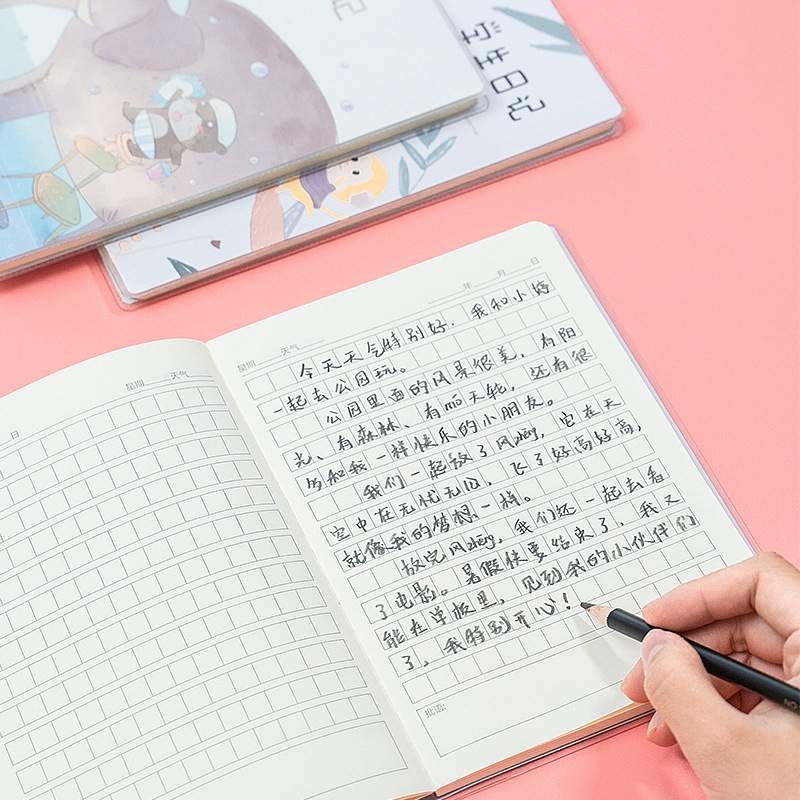 记
学生日记
日
星期 天气
年 月 日
星期 天气
今天天气特别好，我和小婷
一起去公园玩。
公园里面的风景很美，有阳
光、有森林、有mo天轮，还有很
多和我一样快乐的小朋友。
我们一起放了风zheng，它在天
空中在无忧无，飞了好高好高，
就像我的梦想一样。
放完风zheng，我们还一起去看
了电影。暑假快要结束了，我又
能在学校里，见到我的小伙伴们
了，我特别开心！
批语: